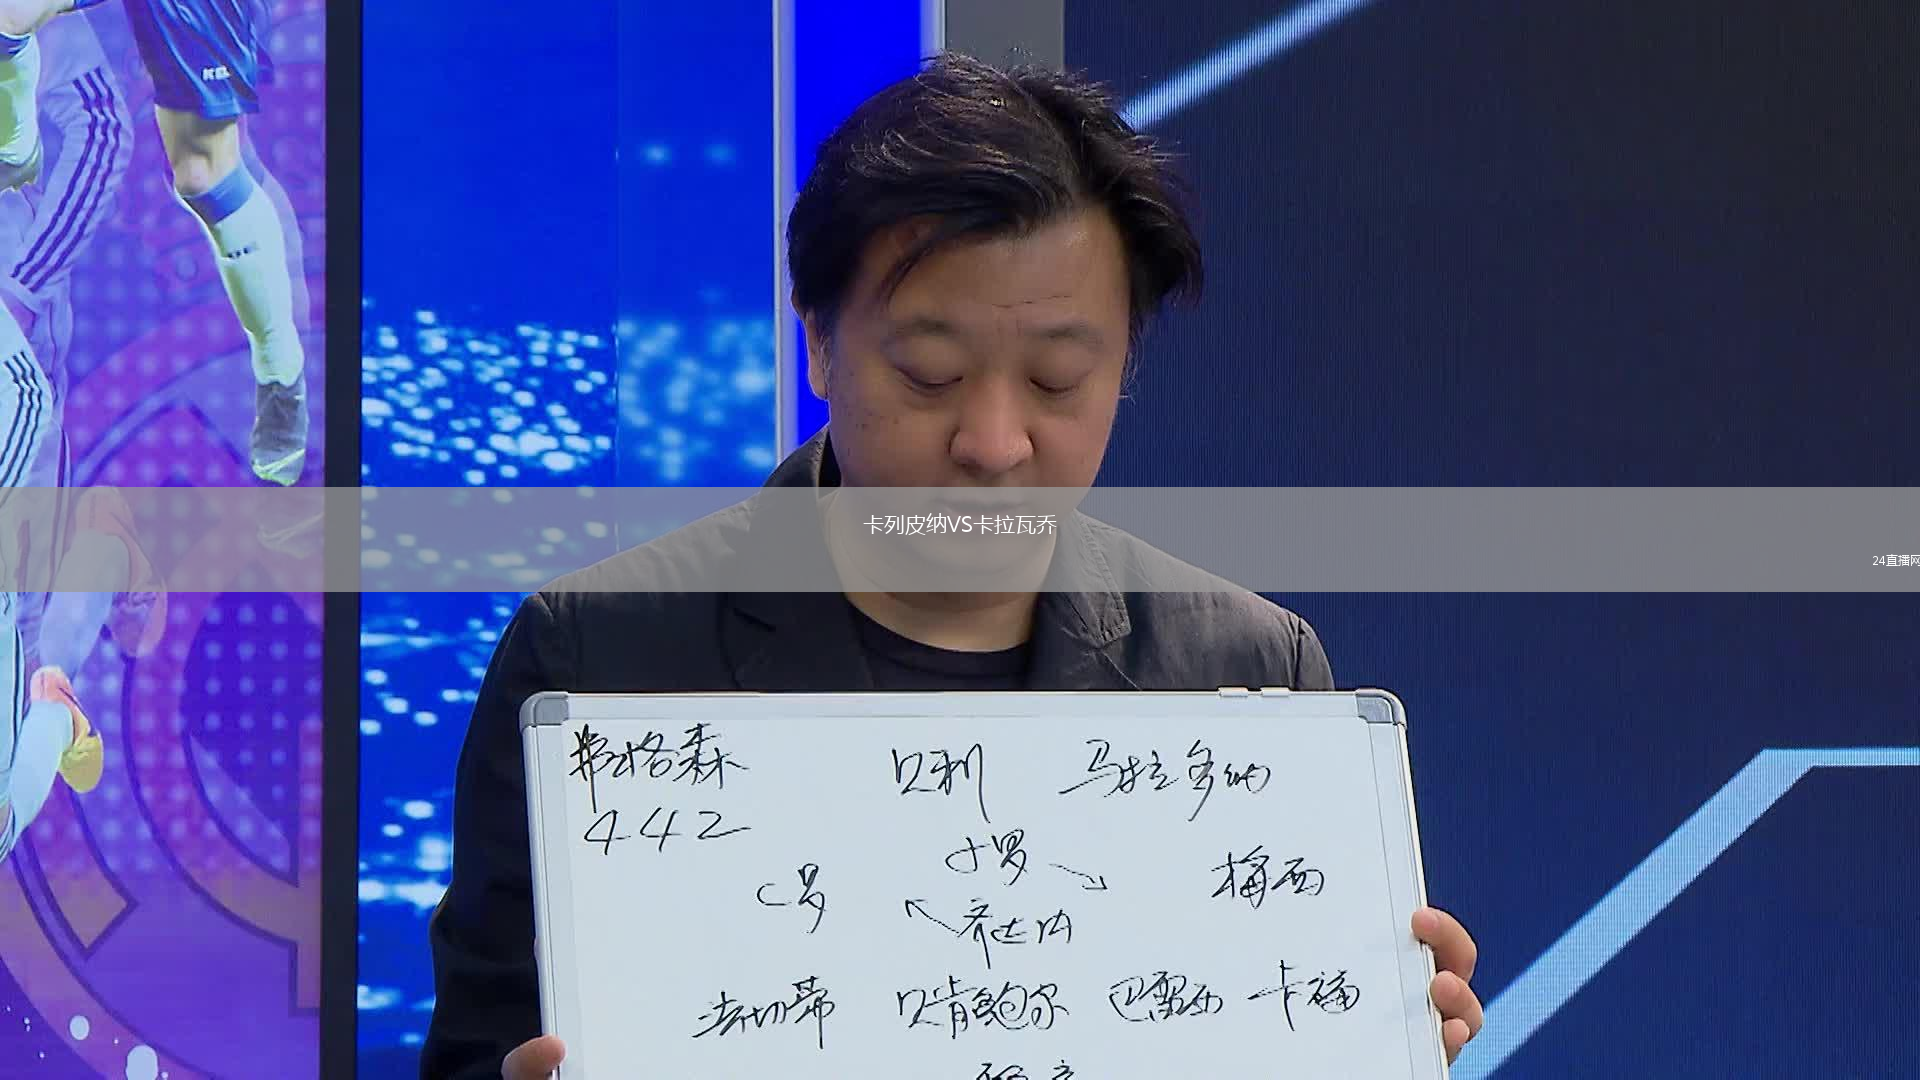 KEL
卡列皮纳VS卡拉瓦乔
24直播网
弗格森 贝利 马拉多纳
442
小罗
C罗 梅西
齐达内
法切蒂 贝肯鲍尔 巴雷西 卡福